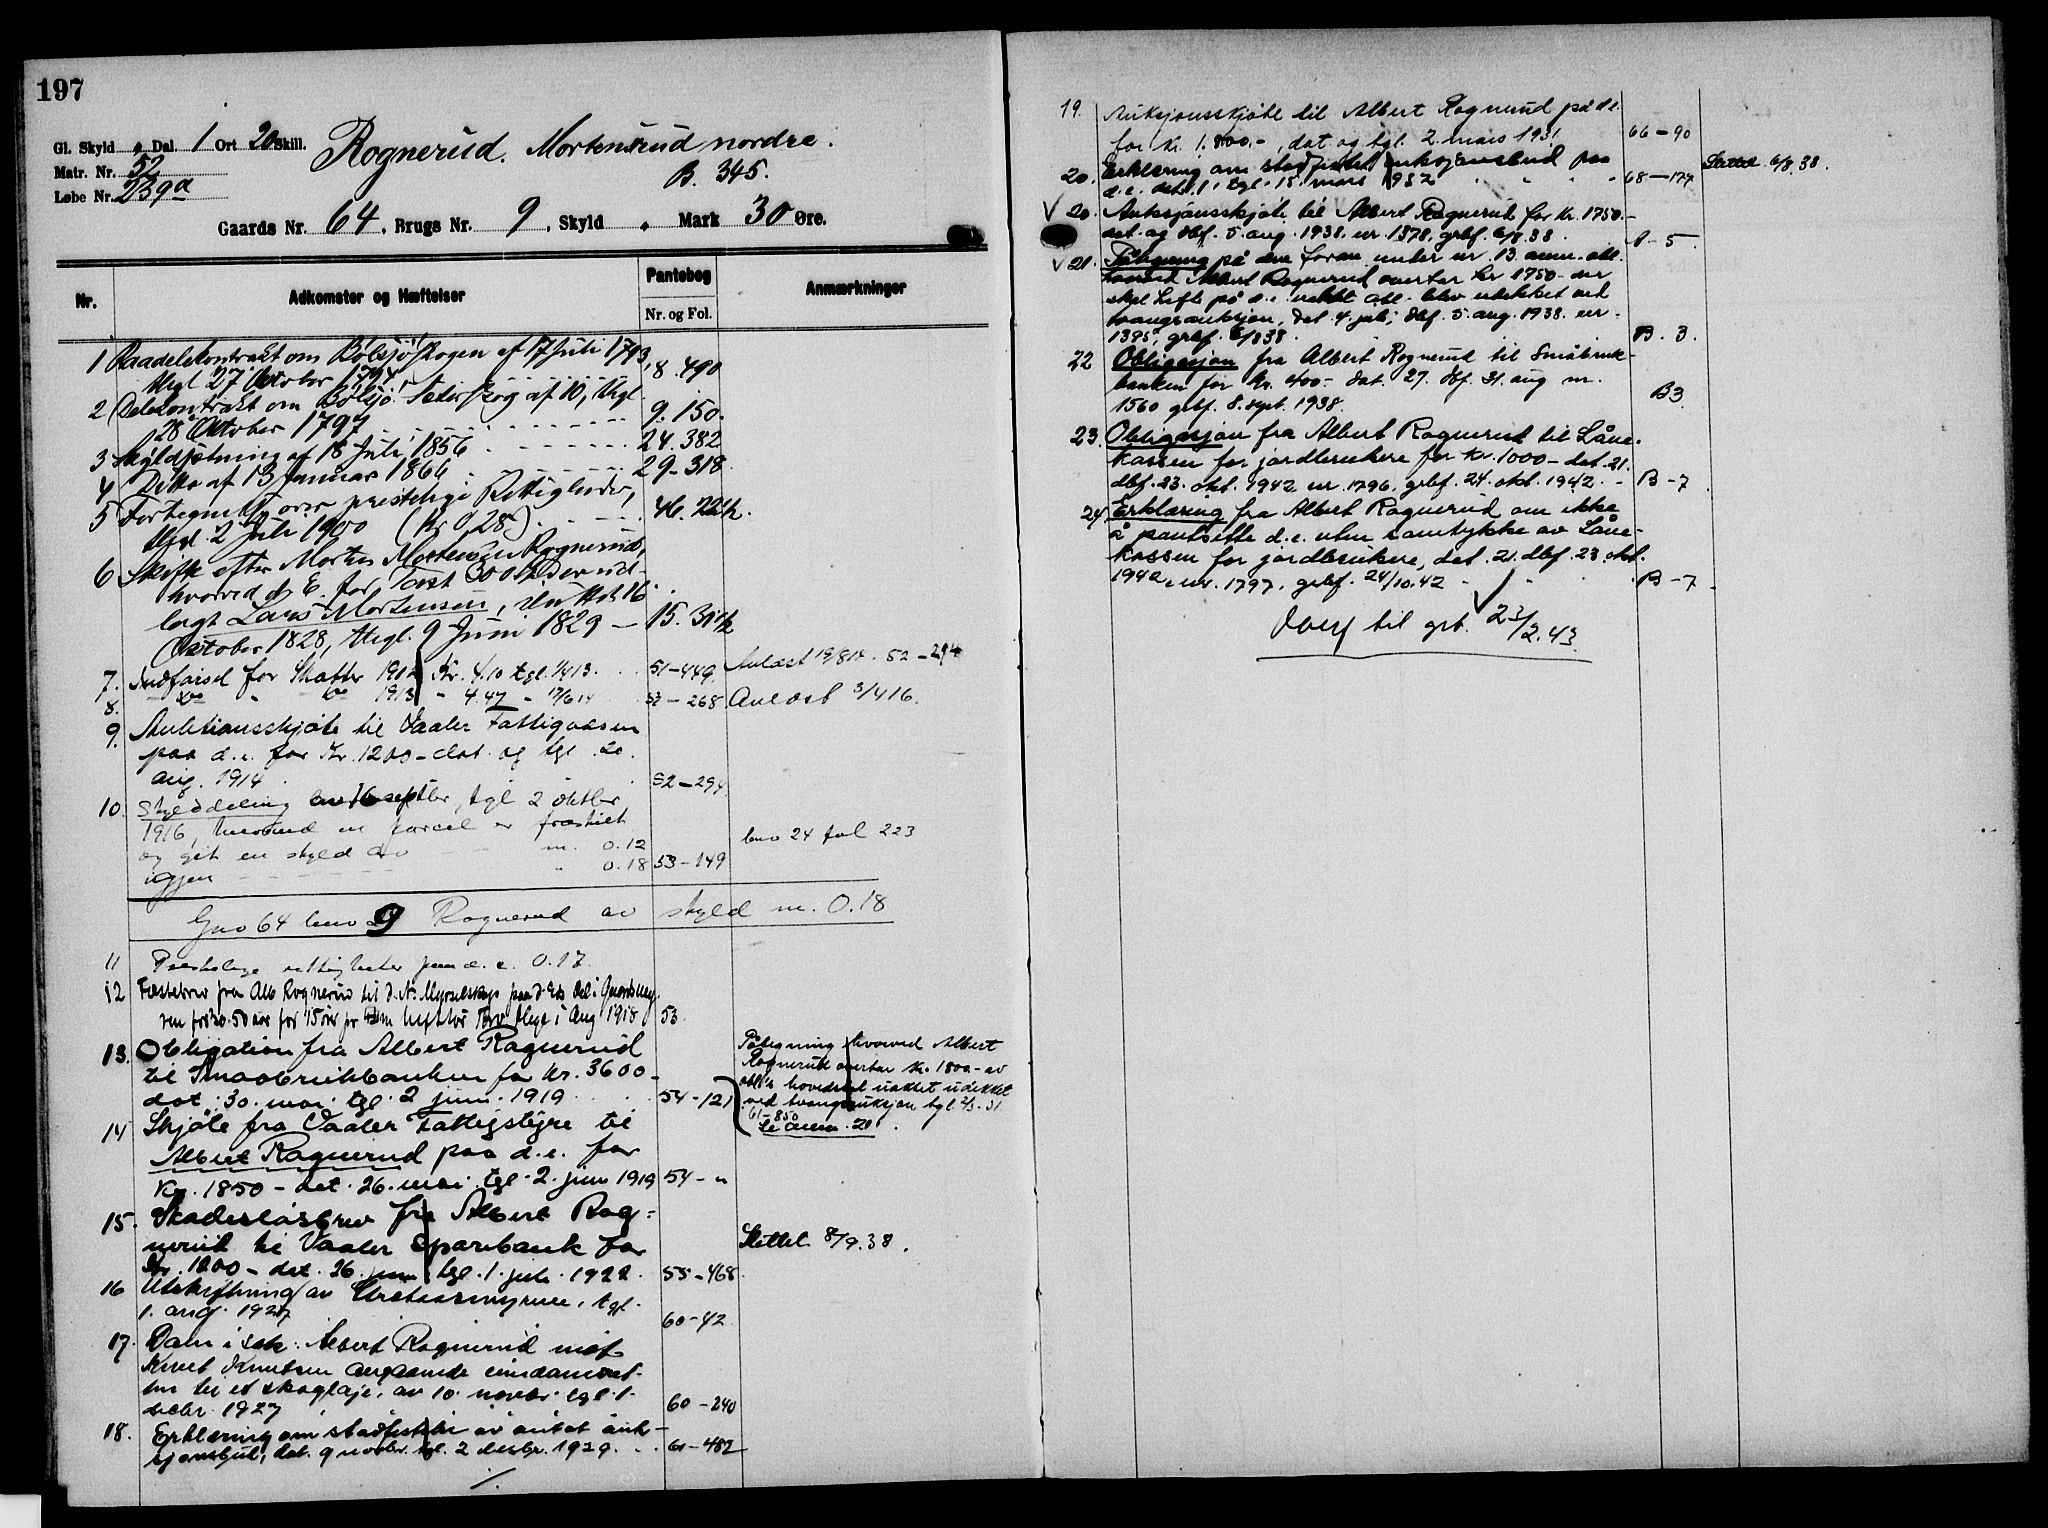 197
Gl. Skyld „ Dal. 1 Ort 20 Skill.
Matr. Nr. 52
Løbe Nr. 239a
Rognerud. Mortensrud nordre.
B. 345.
Gaards Nr. 64, Brugs Nr. 9, Skyld „ Mark 30 Øre.
Nr. Adkomster og Hæftelser Pantebog Anmærkninger
Nr. og Fol.
1 Raadelekontrakt om Bølsjøskogen af 17 Juli 1793,
thgl 27 Oktober 1794 8.490
2 Delekontrakt om Bølsjø Sæterskog af 10, thgl
28 Oktober 1797 9.150.
3 Skyldsætning af 18 Juli 1856 24.382
4 Ditto af 13 Januar 1866 29-318
5 Fortegnelse over prestelige Rettigheder,
thgl. 2 Juli 1900 (Kr 0,28) 46.221/2.
6 Skifte efter Morten Mortensen Rognerud,
hvorved d. E. for Taxt 300 Spd er ud-
lagt Lars Mortensen, sluttet 16
Oktober 1828, thgl. 9 Juni 1829 — 15.311/2
7. Utforsel for Skatter 1912 Kr. 4.10 tgl. 1/4 13. 51-449. Avlæst 19/8 14. 52-294
8. do " do 1913 " 4.47 - 17/6 14 52-268 Avlæst 3/4 16.
9. Auktionsskjøte til Vaaler Fattigvæsen
paa d.e. for Kr. 1200 - dat. og tgl. 20.
aug. 1914 52-294
10. Skylddeling av 16 septbr, tgl 2 oktbr
1916, hvorved en parcel er fraskilt
og git en skyld av m. 0.12 bno 24 fol 223
igjen " 0.18 53-149
Gno 64 bno 9 Rognerud av skyld m. 0.18
11 Prestelige rettigheter paa d.e. 0.17.
12 Fæstebrev fra Alb Rognerud til paa d. Eds del i
ren for 50 aar for 15 øre pr 1918 53
13. Obligation fra Albert Rognerud
til Smaabrukbanken for kr. 3600 -
dat. 30. mai tgl. 2 juni 1919 54-121
Påtegning hvorved Albert
Rognerud overtar kr. 1800 - av
obl's hovedstol uaktet udekket
ved tvangsauksjon tgl. 2/3-31
61-850
Se anm. 20.
14 Skjøte fra Vaaler Fattigstyre til
Albert Rognerud paa d.e. for
Kr. 1850 - dat. 26. mai tgl. 2. juni 1919 54 - "
15. Skadesløsbrev fra Albert Rog-
nerud til Vaaler Sparebank for
Kr. 1200 - dat. 26. juni tgl. 1. juli 1922. 55-468. Slettet 8/9.38.
16 Utskiftning av tgl.
1. aug. 1927 60-42
17. Dom i sak: Albert Rognerud mot
Knut Knutsen angaaende eiendomsret-
ten til et skogteie, av 10. novbr. tgl. 1.
decbr. 1927 60-240
18. Erklæring om stadfestelse av antat auk-
sjonsbud, dat. 9 novbr. tgl. 2 desbr. 1929. 61-482
19. Auksjonsskjøte til Albert Rognerud på d.e.
for kr. 1.800.-, dat. og tgl. 2. mars 1931 66-90
20. Erklæring om stadfestet auksjonsbud paa
d.e. dat. 1. tgl. 15. mars 1932 68-177 Slettet 6/8 38.
20. Auksjonsskjøte til Albert Rognerud for kr. 1750.-
dat. og dbf. 5. aug. 1938. nr. 1378. grbf. 6/8 38. A-5.
21. Påtegning på den foran under nr. 13 anm. obl.
hvorved Albert Rognerud overtar kr 1750.- der
skal hefte på d.e. uaktet obl. blev udekket ved
tvangsauksjon, dat. 4. juli, dbf. 5. aug. 1938. nr.
1395, grbf. 6/8 38. B. 3.
22 Obligasjon fra Albert Rognerud til Småbruk-
banken for kr. 400.- dat. 27. dbf. 31. aug nr.
1560 grbf. 8. sept. 1938. B3
23. Obligasjon fra Albert Rognerud til Låne-
kassen for jordbrukere for kr. 1000.- dat. 21.
dbf. 23. okt. 1942 nr. 1796. grbf. 24. okt. 1942. - B-7
24 Erklæring fra Albert Rognerud om ikke
å pantsette d.e. uten samtykke av Låne-
kassen for jordbrukere, dat. 21. dbf. 23. okt.
1942. nr. 1797. grbf. 24/10.42 B-7
Overf til grb. 23/2.43.